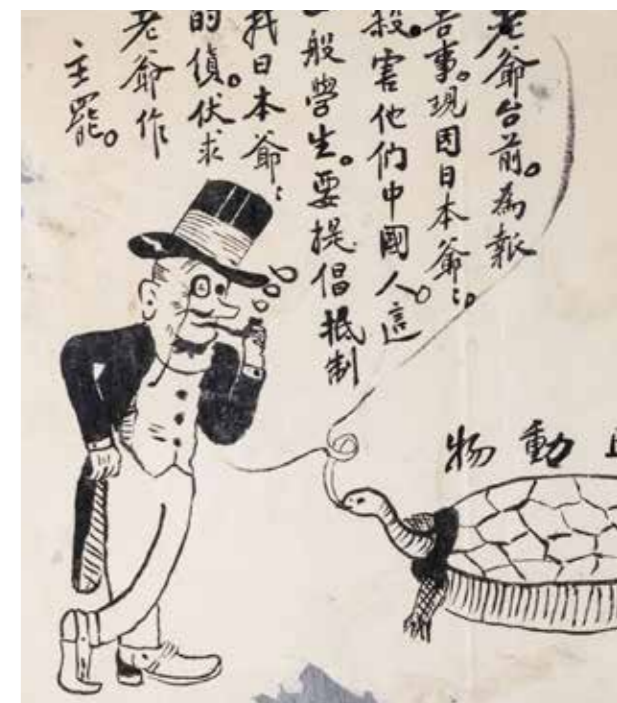 老爺台前。為報
告事。現因日本爺:。
殺。害他們中國人。這
一般學生。要提倡抵制
我日本爺:
的偵。伏求
老爺作
主罷。
動物